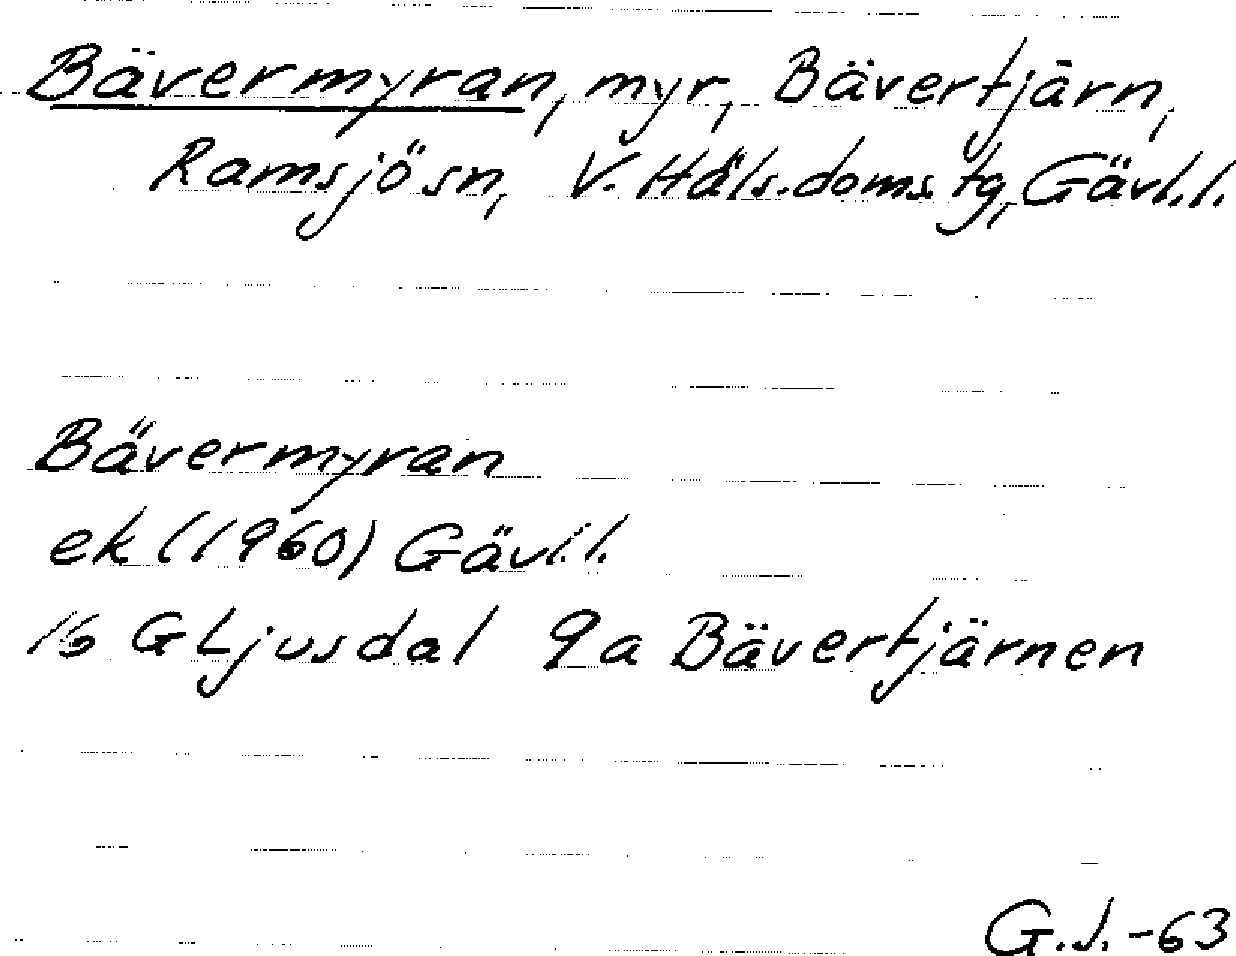 Bävermyran, myr, Bävertjärn,
Ramsjö sn, V. Häls. doms. tg, Gävl.l.
Bävermyran
ek (1960) Gävl.l.
16 G Ljusdal 9a Bävertjärnen
G.J. -63